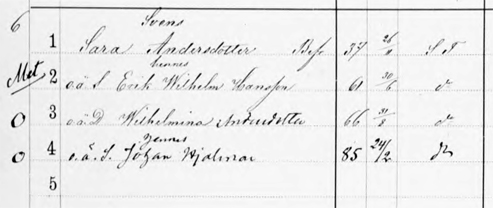 6
Svens
1 Sara Andersdotter 37 26/11 S F
hennes
Met 2 o.ä. S Erik Wilhelm Hansson 61 30/6 d:o
0 3 o.ä. D. Wilhelmina Andersdotter 66 31/8 d:o
hennes
0 4 o.ä. S. Johan Hjalmar 85 24/2 d:o
5